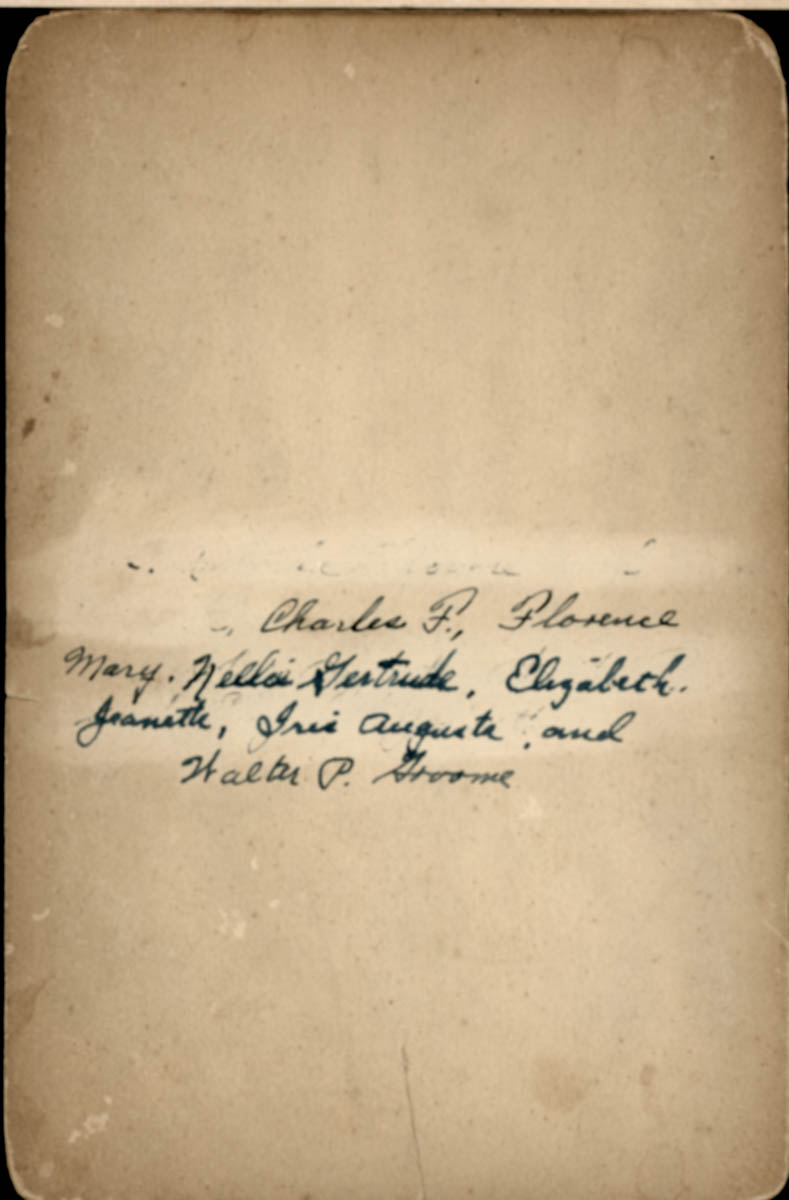 Charles F., Florence
Mary. Nellie Gertrude, Elizabeth.
Jeanette, Iris Augusta, and
Walter P. Groome